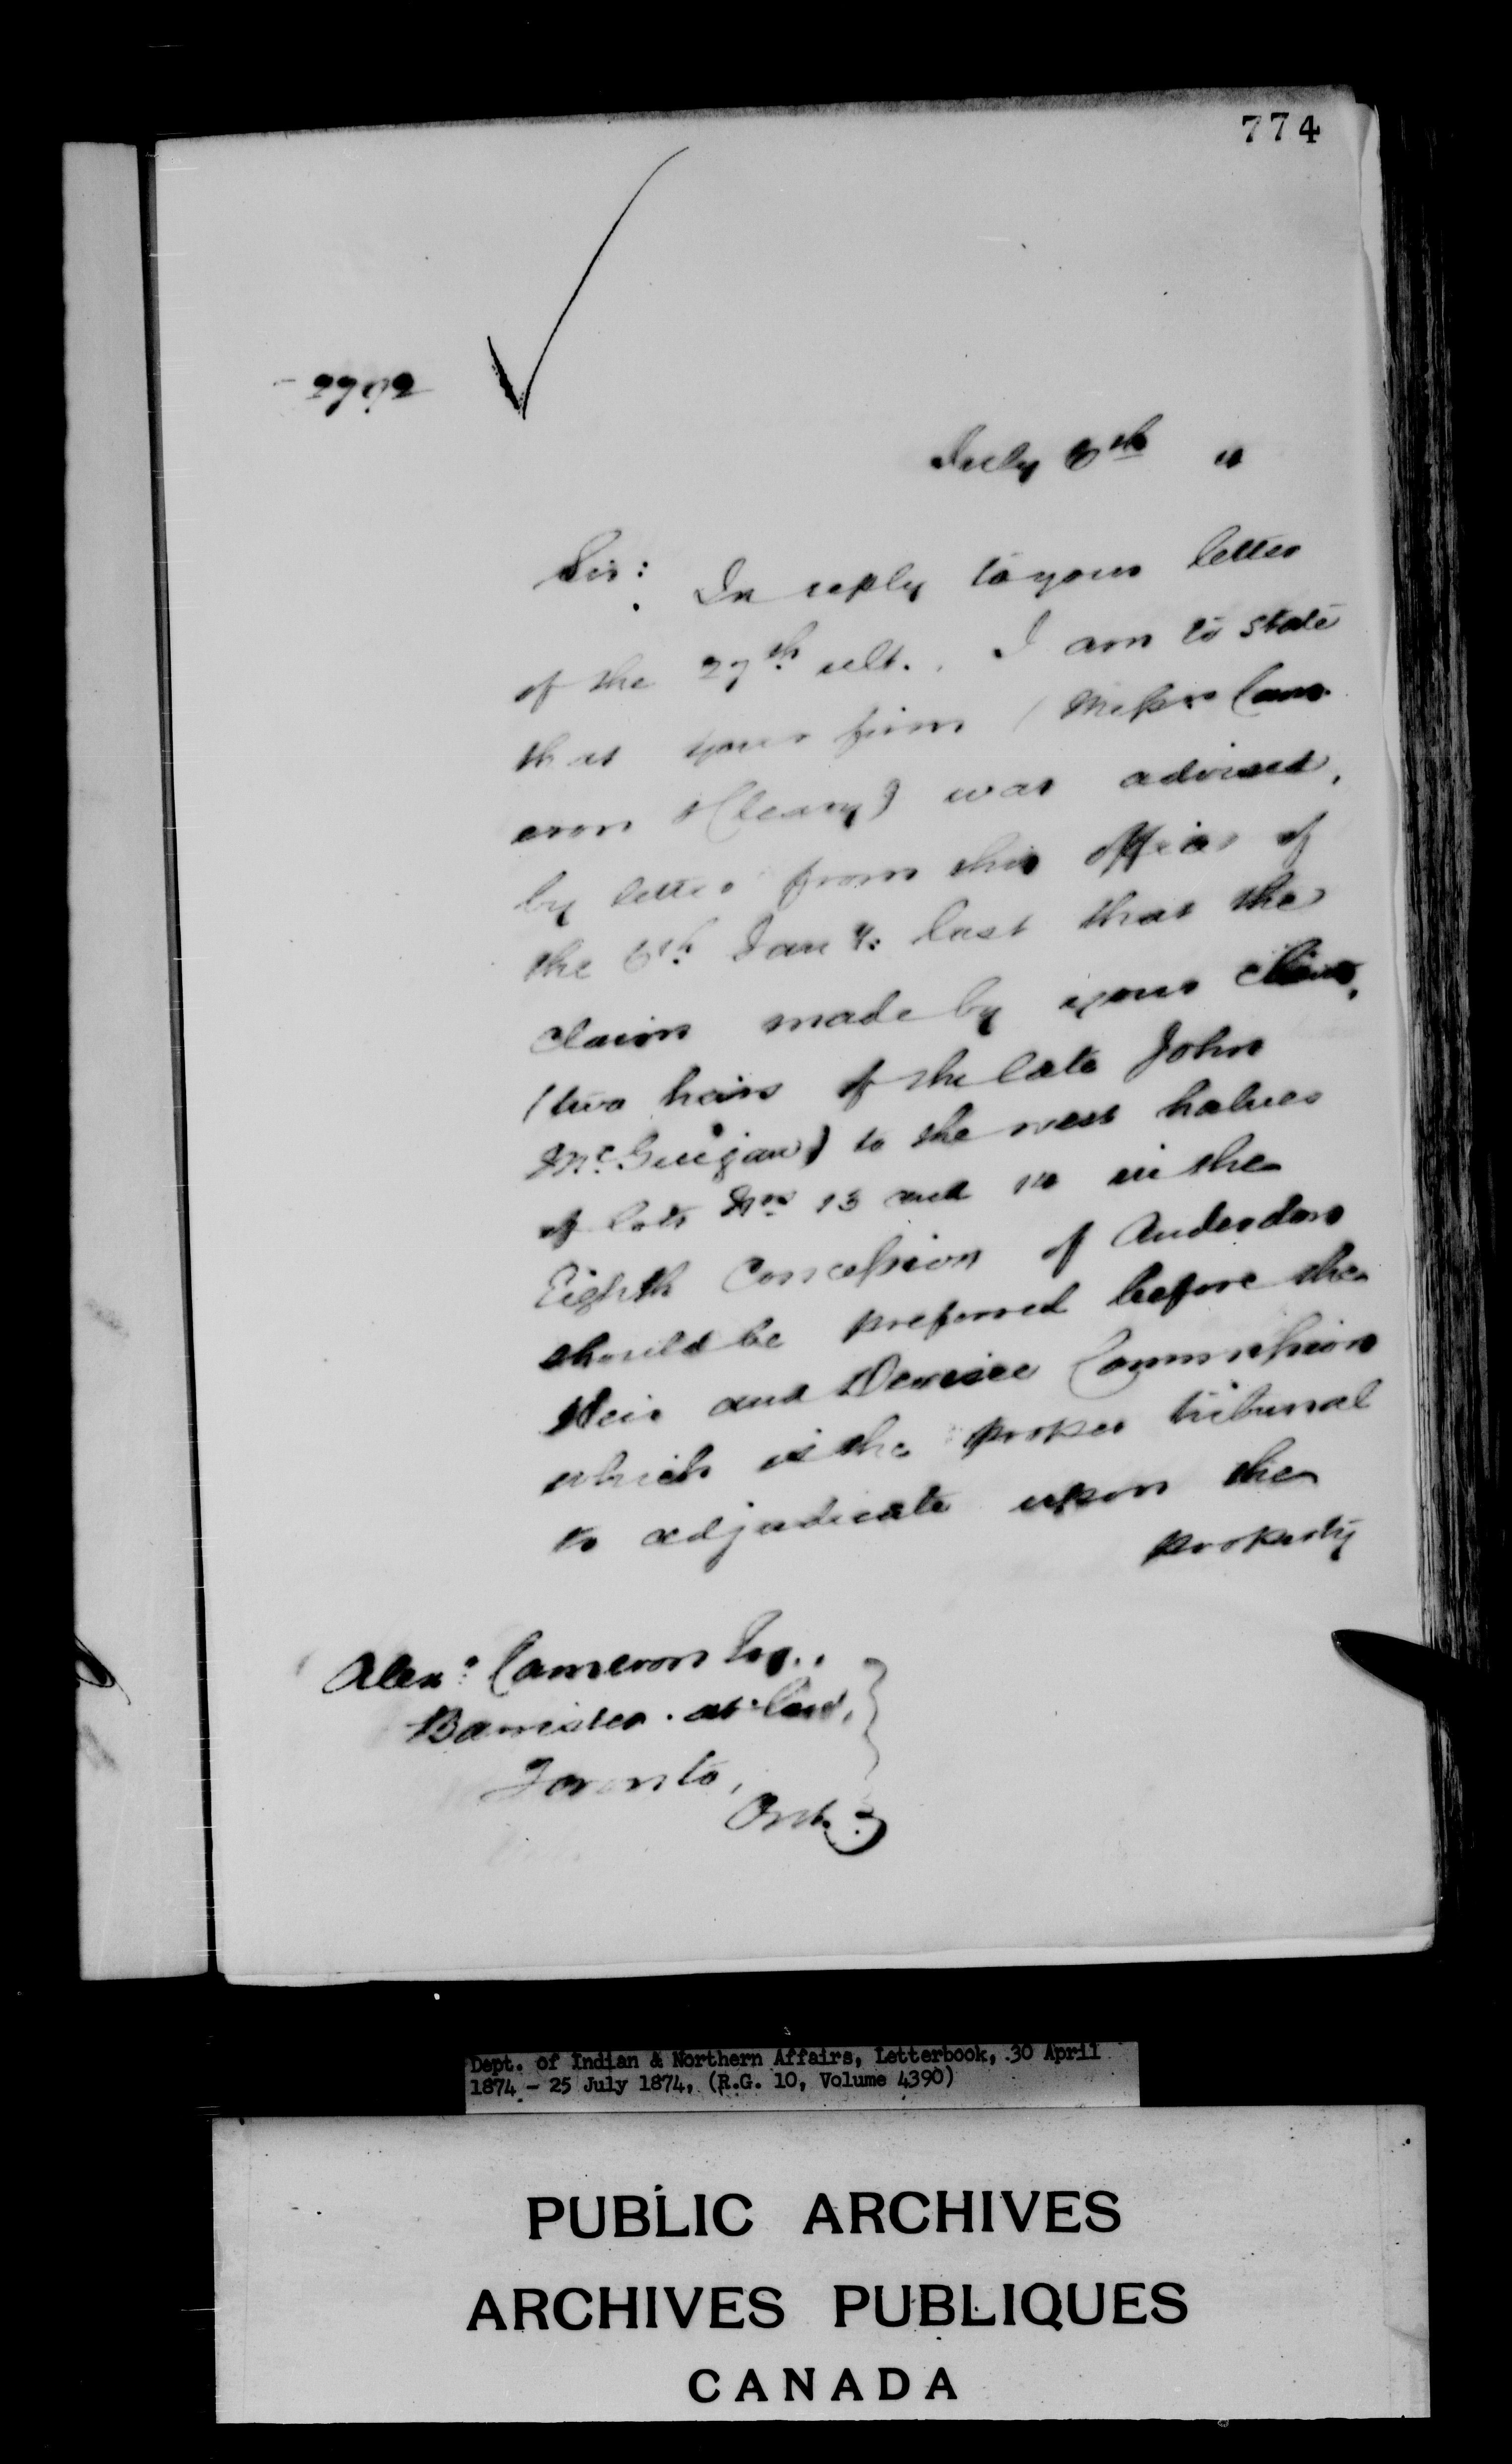 774
July 6th "
Sir:
In reply to your letter
of the 27th ult., I am to state
that your firm (Messrs Cam-
eron & Cleary) was advised,
by letter from this office of
the 6th Jany. last that the
claim made by your clients,
(two heirs of the late John
McGuigan) to the west halves
of lots Nos 13 and 14 in the
Eighth Concession of Anderdon
should be preferred before the
Heir and Devisee Commission
which is the proper tribunal
to adjudicate upon the
property
Alexr Cameron Esq.,
Barrister-at-Law,
Toronto,
Ont.
Dept. of Indian & Northern Affairs, Letterbook, 30 April
1874 - 25 July 1874, (R.G. 10, Volume 4390)
PUBLIC ARCHIVES
ARCHIVES PUBLIQUES
CANADA